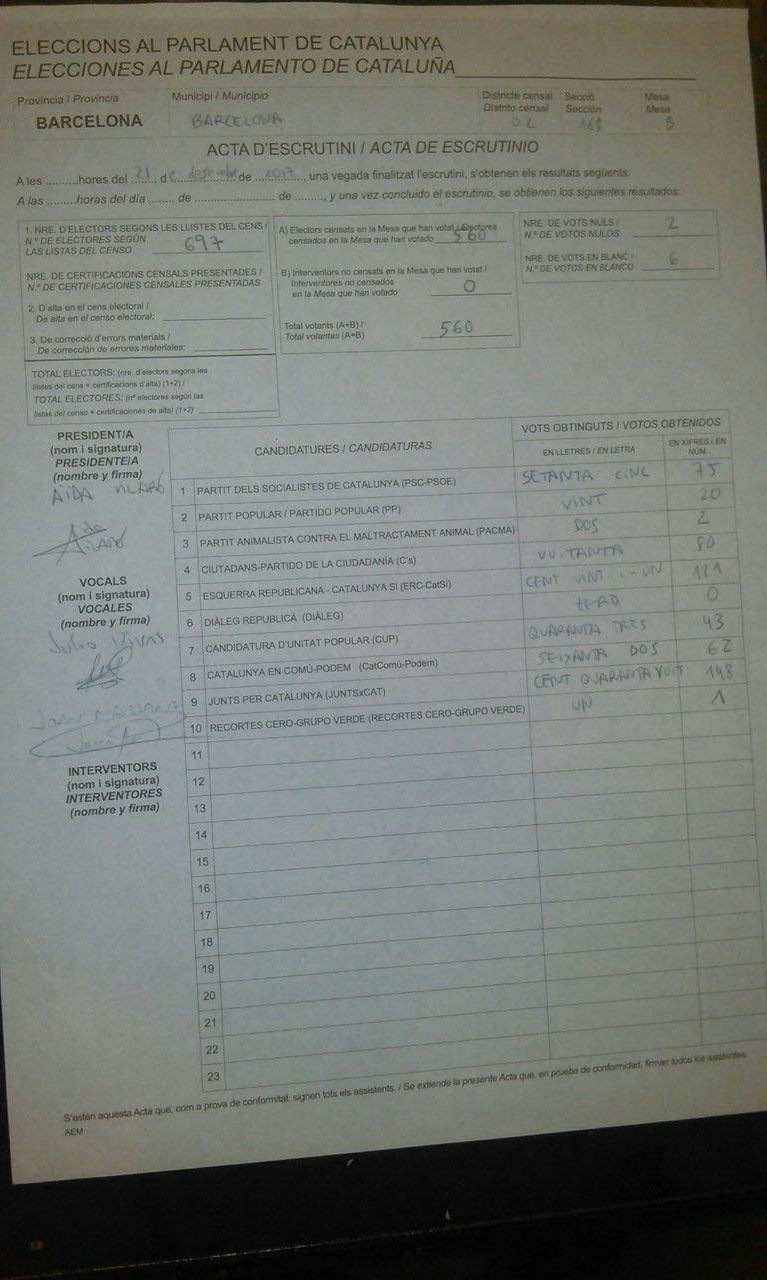 ELECCIONS AL PARLAMENT DE CATALUNYA
ELECCIONES AL PARLAMENTO DE CATALUÑA
Província / Provincia
Municipi / Municipio
Districte censal Secció Mesa
Distrito censal Sección Mesa
BARCELONA BARCELONA 02 B
ACTA D'ESCRUTINI / ACTA DE ESCRUTINIO
A les ..........hores del 21 de desembre de 2017, una vegada finalitzat l'escrutini, s'obtenen els resultats següents:
A las ..........horas del día ........ de .......................... de .........., y una vez concluido el escrutinio, se obtienen los siguientes resultados:
1. NRE. D'ELECTORS SEGONS LES LLISTES DEL CENS /
N.º DE ELECTORES SEGÚN
LAS LISTAS DEL CENSO 697
NRE. DE CERTIFICACIONS CENSALS PRESENTADES /
N.º DE CERTIFICACIONES CENSALES PRESENTADAS
2. D'alta en el cens electoral /
De alta en el censo electoral:
3. De correcció d'errors materials /
De corrección de errores materiales:
TOTAL ELECTORS: (nre. d'electors segons les
llistes del cens + certificacions d'alta) (1+2) /
TOTAL ELECTORES: (nº electores según las
listas del censo + certificaciones de alta) (1+2)
A) Electors censats en la Mesa que han votat / Electores
censados en la Mesa que han votado 560
B) Interventors no censats en la Mesa que han votat /
Interventores no censados
en la Mesa que han votado 0
Total votants (A+B) /
Total votantes (A+B) 560
NRE. DE VOTS NULS /
N.º DE VOTOS NULOS 2
NRE. DE VOTS EN BLANC /
N.º DE VOTOS EN BLANCO 6
PRESIDENT/A
(nom i signatura)
PRESIDENTE/A
(nombre y firma)
AIDA VILARÓ
VOCALS
(nom i signatura)
VOCALES
(nombre y firma)
Julio
Joan
INTERVENTORS
(nom i signatura)
INTERVENTORES
(nombre y firma)
CANDIDATURES / CANDIDATURAS
VOTS OBTINGUTS / VOTOS OBTENIDOS
EN LLETRES / EN LETRA
EN XIFRES / EN
NÚM.
1 PARTIT DELS SOCIALISTES DE CATALUNYA (PSC-PSOE) SETANTA CINC 75
2 PARTIT POPULAR / PARTIDO POPULAR (PP) VINT 20
3 PARTIT ANIMALISTA CONTRA EL MALTRACTAMENT ANIMAL (PACMA) DOS 2
4 CIUTADANS-PARTIDO DE LA CIUDADANÍA (C's) VUITANTA 80
5 ESQUERRA REPUBLICANA - CATALUNYA SÍ (ERC-CatSí) CENT VINT-I-UN 121
6 DIÀLEG REPUBLICÀ (DIÀLEG) ZERO 0
7 CANDIDATURA D'UNITAT POPULAR (CUP) QUARANTA TRES 43
8 CATALUNYA EN COMÚ-PODEM (CatComú-Podem) SEIXANTA DOS 62
9 JUNTS PER CATALUNYA (JUNTSxCAT) CENT QUARANTA VUIT 148
10 RECORTES CERO-GRUPO VERDE (RECORTES CERO-GRUPO VERDE) UN 1
11
12
13
14
15
16
17
18
19
20
21
22
23
S'estén aquesta Acta que, com a prova de conformitat, signen tots els assistents. / Se extiende la presente Acta que, en prueba de conformidad, firman todos los asistentes.
AEM